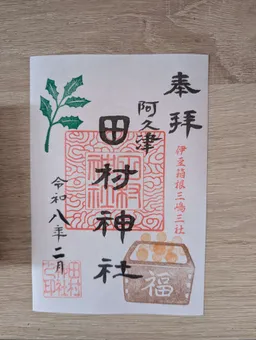 奉拝
伊豆箱根三嶋三社
阿久津
田村神社
令和八年二月
福